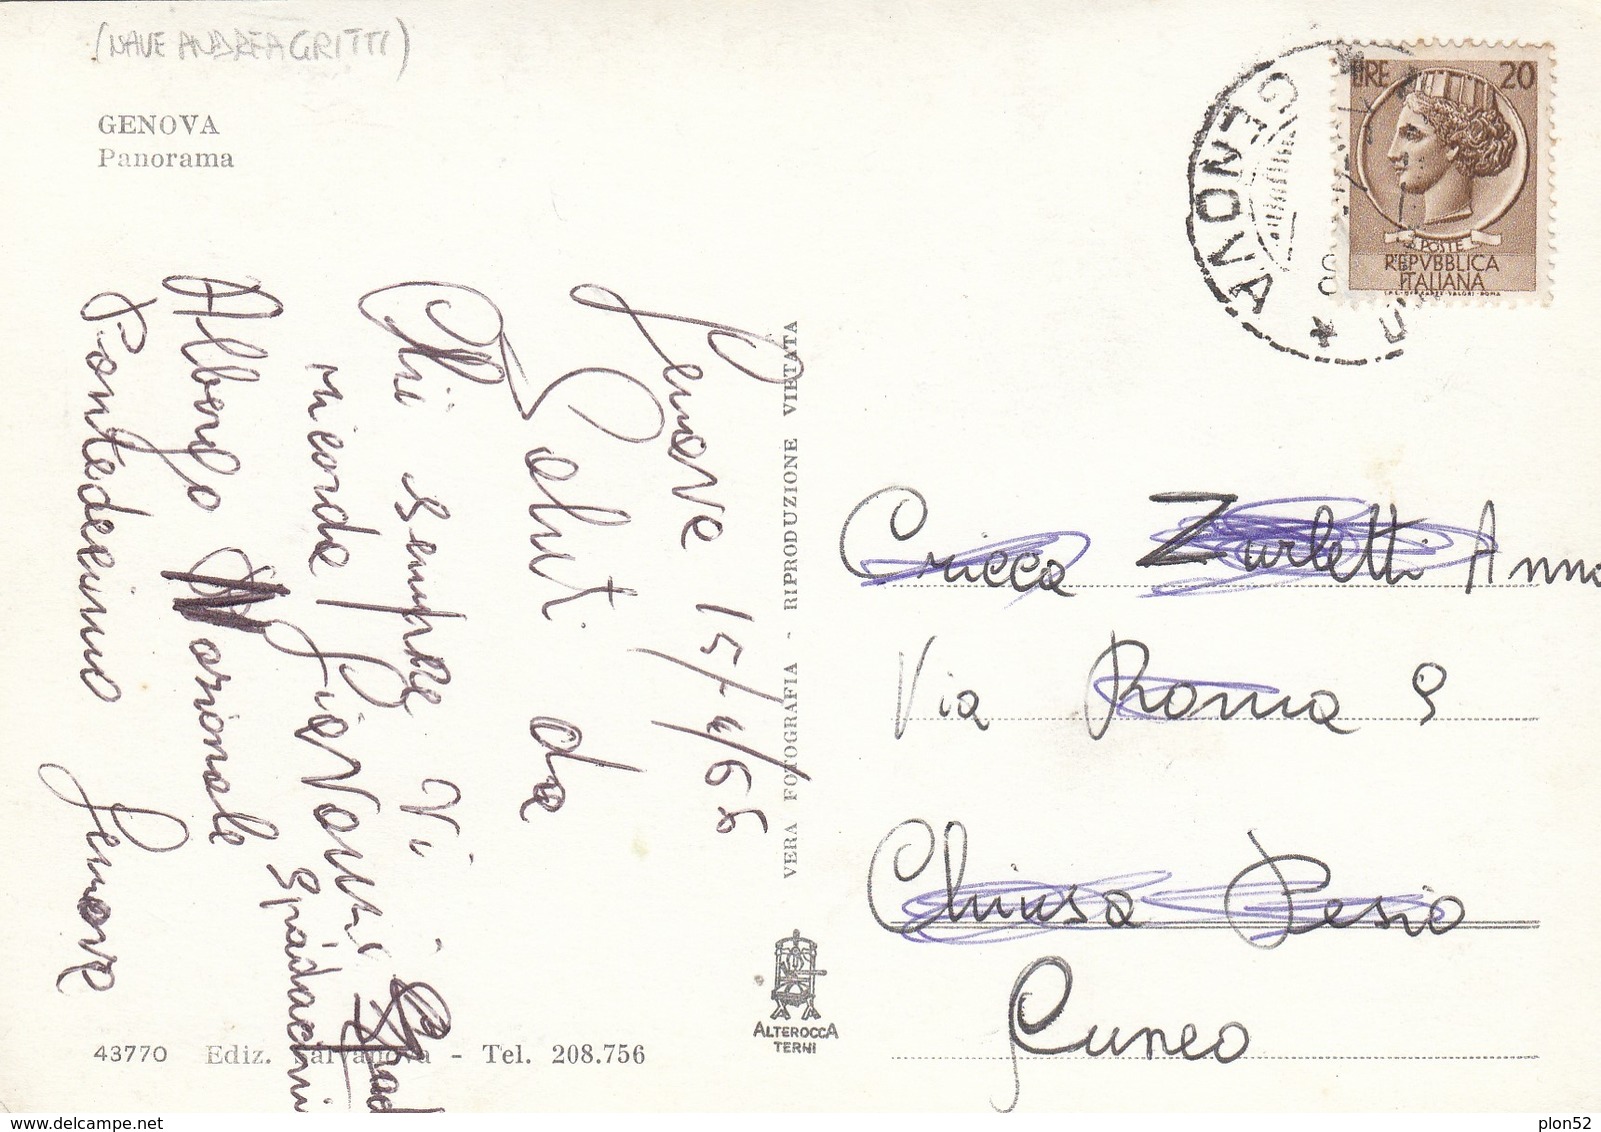 (NAVE ANDREA GRITTI)
GENOVA
Panorama
GENOVA
LIRE 20
POSTE
REPVBBLICA
ITALIANA
Genova 15/4/68
Saluti da
Chi sempre Vi
ricorda Giovanni
Spadaccini
Albergo Nazionale
Pontedecimo Genova
VERA FOTOGRAFIA - RIPRODUZIONE VIETATA
Cricca Zurletti Anna
Via Roma 9
Chiusa Pesio
Cuneo
ALTEROCCA
TERNI
43770 Ediz. - Tel. 208.756
delcampe.net
plon52